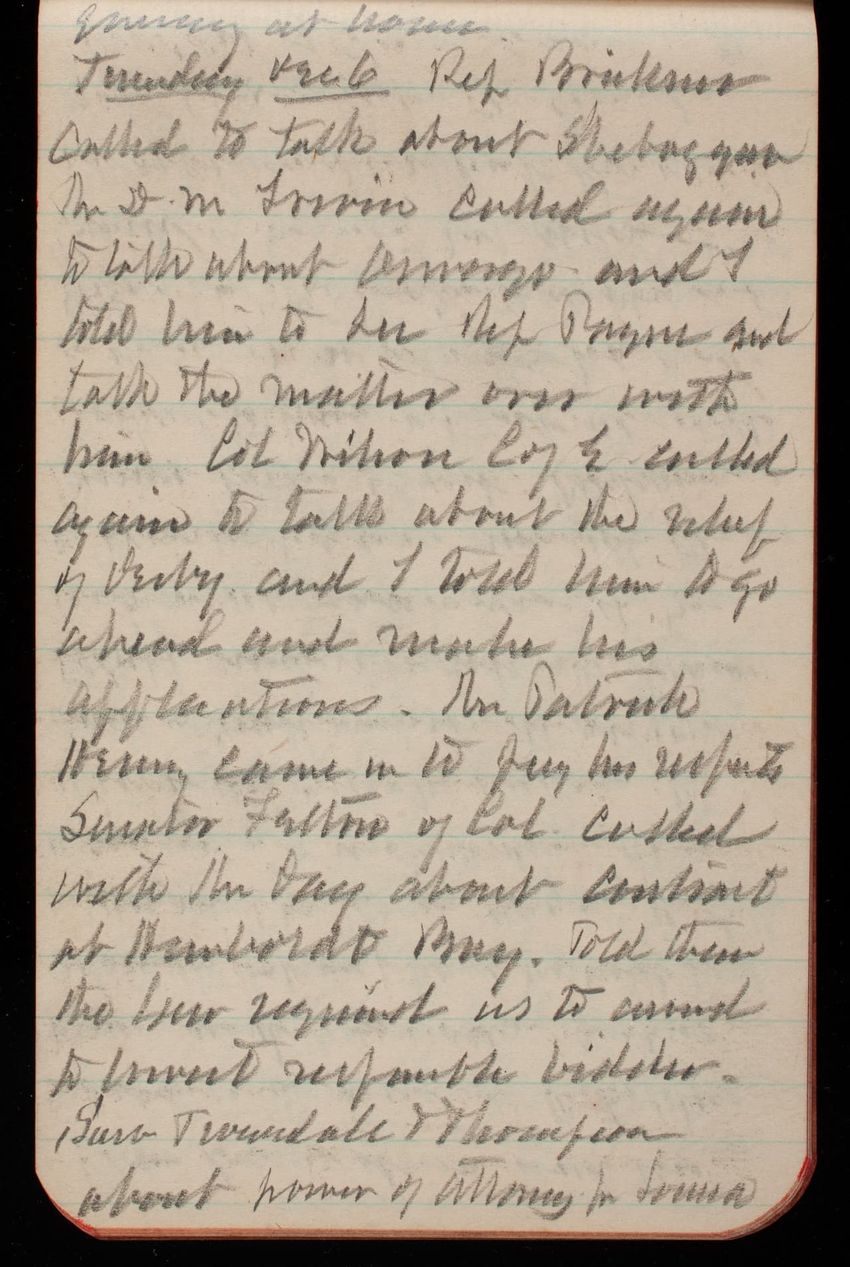 Evening at home
Tuesday Dec 6 Rep Brickner
Called to talk about Sheboygan
Mr D. M. Irwin called again
to talk about Oswego and I
told him to see Rep Payne and
talk the matter over with
him Col Wilson C of E called
again to talk about the relief
of Derby and I told him to go
ahead and make his
applications. Mr Patrick
Henry came in to pay his respects
Senator Felton of Cal called
with Mr Day about contract
at Humboldt Bay. Told them
the law required us to award
to lowest responsible bidder.
Saw Truesdale & Thompson
about power of attorney for